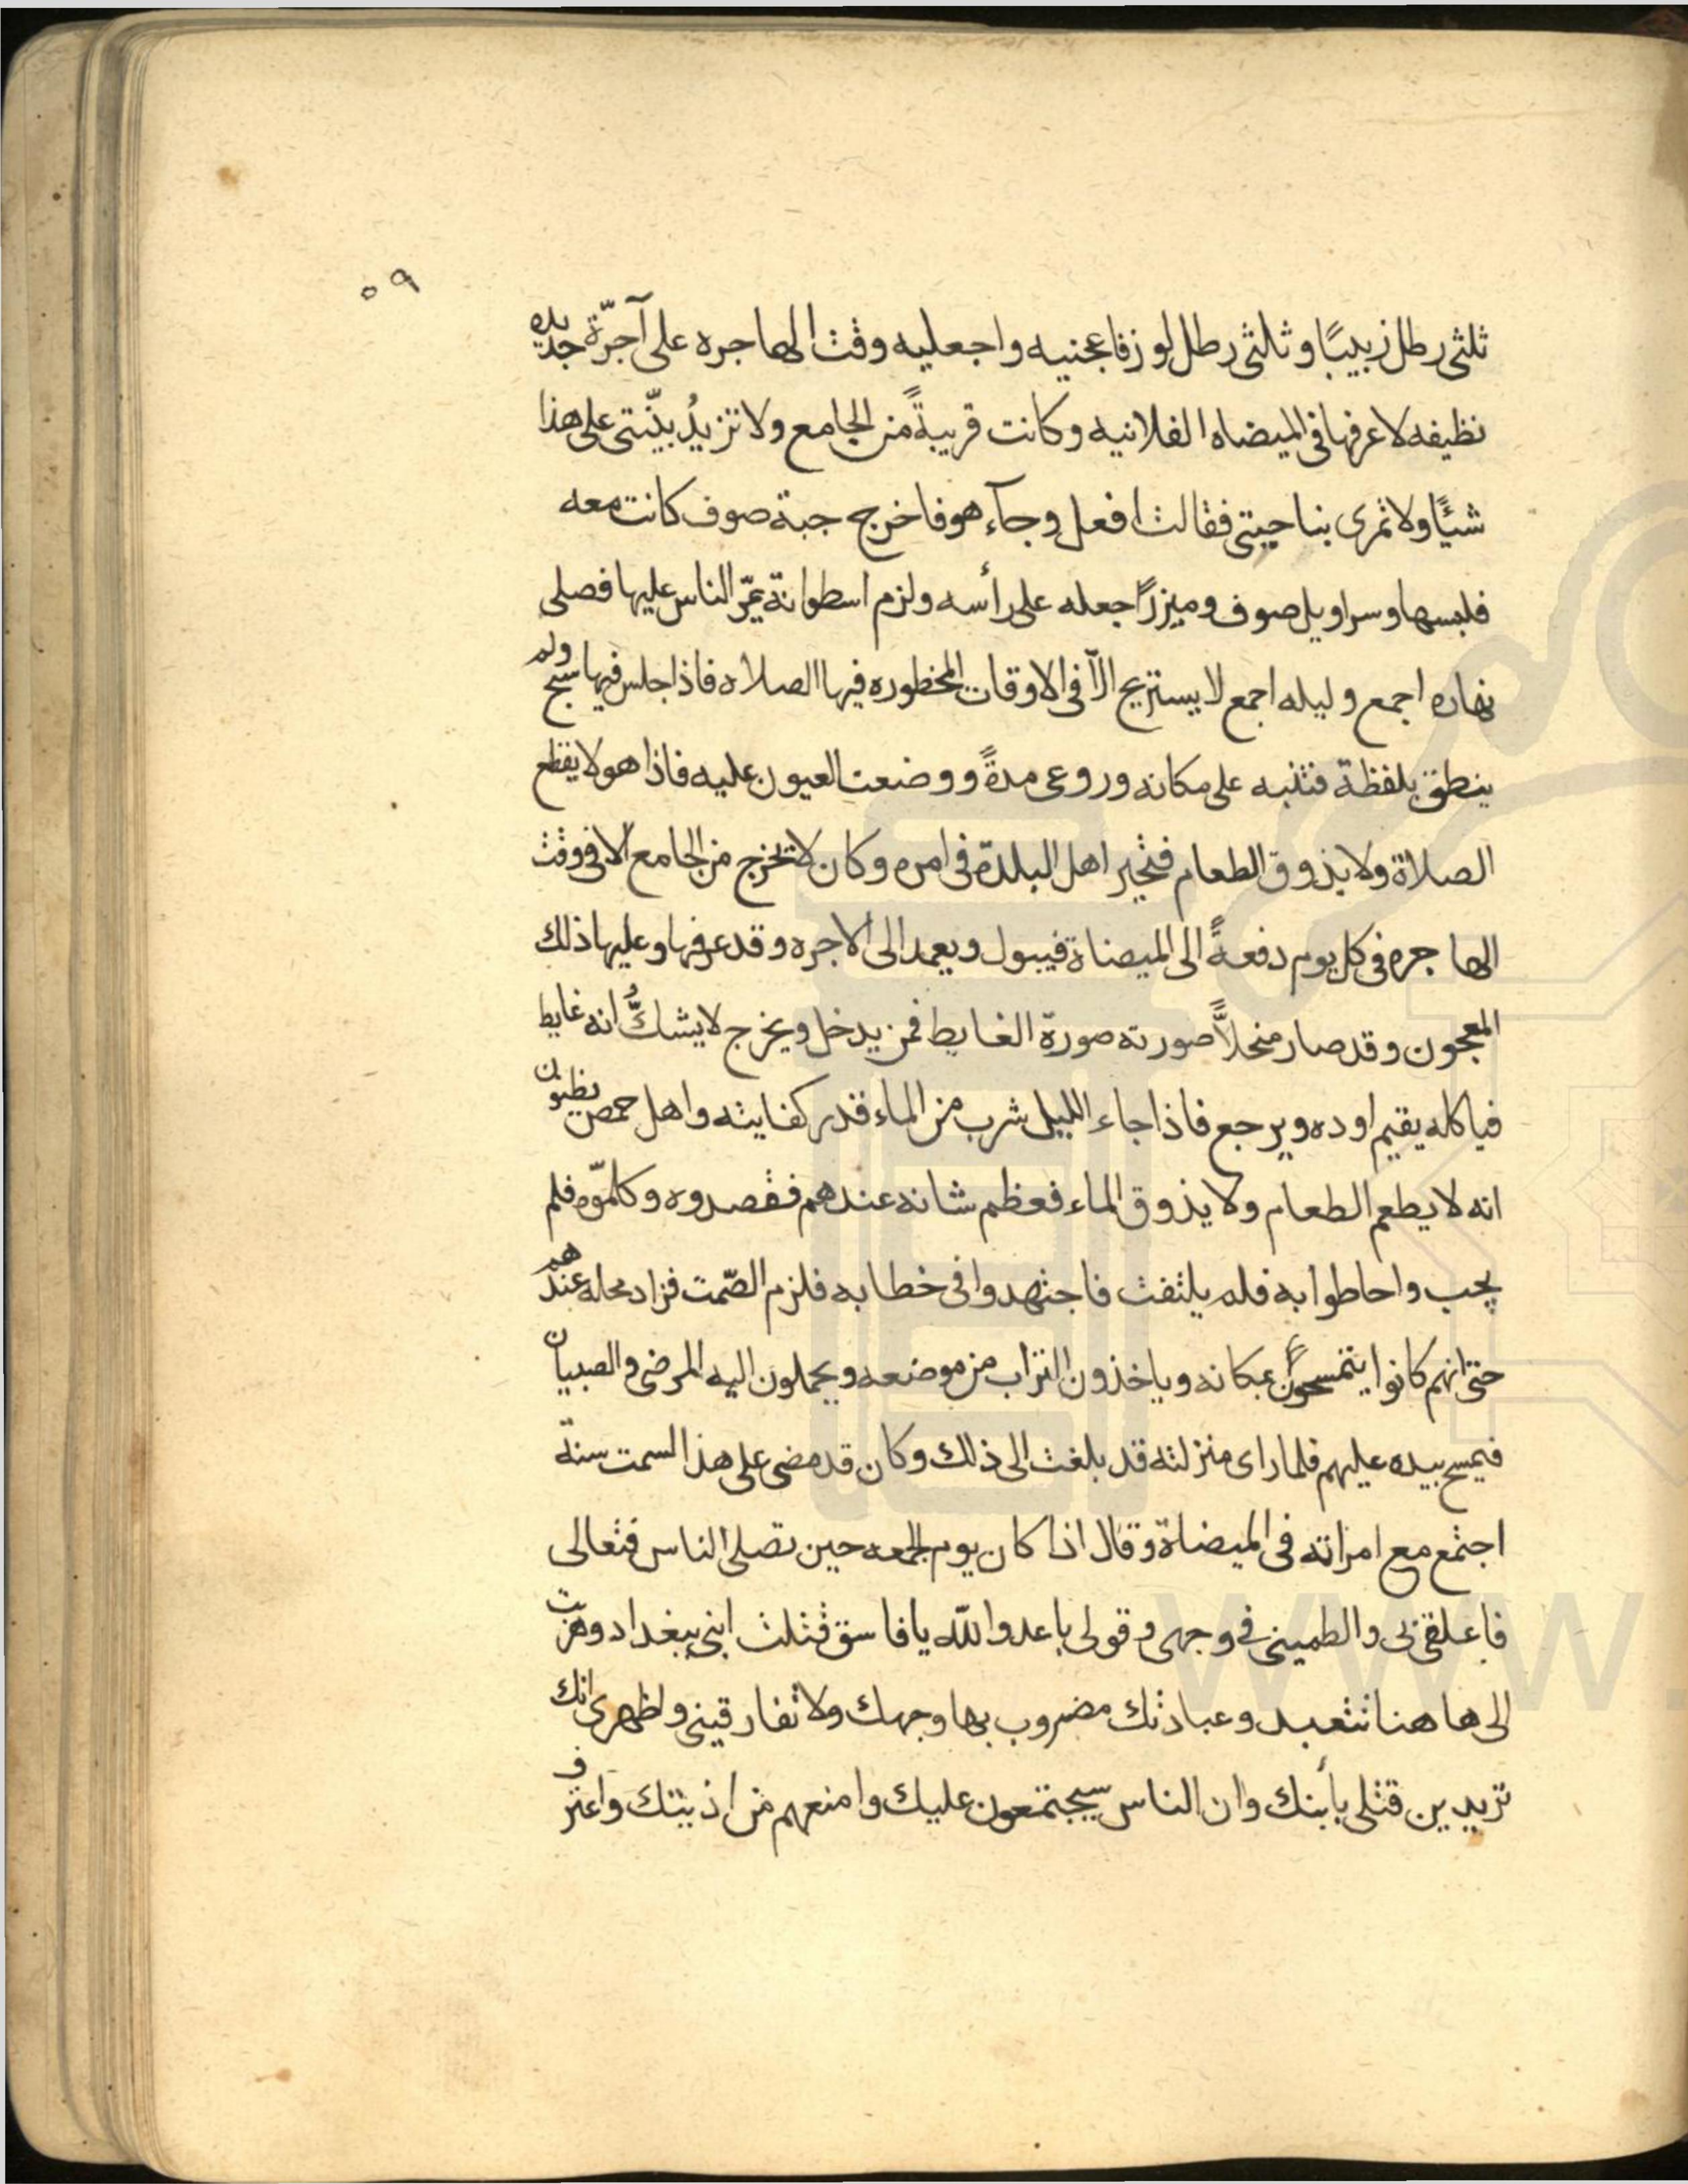 ٥٩
ثلثى رطل زبيبًا وثلثى رطل لوز فاعجنيه واجعليه وقت الهاجره على آجرّة جديده
نظيفه لاعرفها فى الميضاه الفلانيه وكانت قريبةً من الجامع ولا تزيدُ ينّتى على هذا
شيًا ولا تمرى بناحيتى فقالت افعل وجآء هو فاخرج جبة صوف كانت معه
فلبسها وسراويل صوف وميزرًا جعله على رأسه ولزم اسطوانة يمّر الناس عليها فصلى
نهاره اجمع وليله اجمع لا يستريح الّا فى الاوقات المحظوره فيها الصلاه فاذا جلس فيها سبح ولم
ينطق بلفظة فتنبه على مكانه وروعى مدةً ووضعت العيون عليه فاذا هو لا يقطع
الصلاة ولا يذوق الطعام فتحير اهل البلدة فى امره وكان لا يخرج من الجامع الا فى وقت
الهاجره فى كل يوم دفعةً الى الميضاة فيبول ويعمد الى الاجره وقد عرفها وعليها ذلك
المعجون وقد صار منحلاًّ صورته صورة الغايط فمن يدخل ويخرج لا يشكُّ انه غايط
فياكله يقيم اوده ويرجع فاذا جاء الليل شرب من الماء قدر كفايته واهل حمص يظنون
انه لا يطعم الطعام ولا يذوق الماء فعظم شانه عندهم فقصدوه وكلمّوه فلم
يجب واحاطوا به فلم يلتفت فاجتهدوا فى خطابه فلزم الصّمت فزاد محله عندهم
حتى انهم كانوا يتمسحون بمكانه وياخذون التراب من موضعه ويحملون اليه المرضى والصبيان
فيمسح بيده عليهم فلما راى منزلته قد بلغت الى ذلك وكان قد مضى على هذا السمت سنة
اجتمع مع امراته فى الميضاة وقال اذا كان يوم الجمعه حين تصلى الناس فتعالى
فاعلقى بى والطمينى فى وجهى وقولى ياعدو الله يا فاسق قتلت ابنى ببغداد وهربت
الى هاهنا تتعبد وعبادتك مضروب بها وجهك ولا تفارقينى واظهرى انك
تريدين قتلى بأبنك وان الناس سيجتمعون عليك وامنعهم من اذيتك واعترف